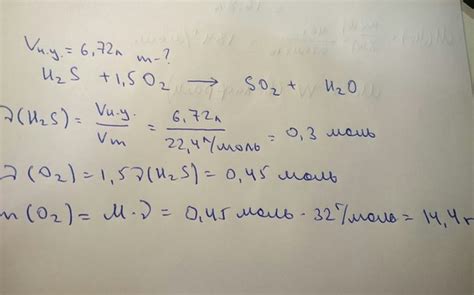 Vн.у. = 6,72л m-?
H₂S + 1,5O₂ → SO₂ + H₂O
ν(H₂S) = Vн.у. / Vm = 6,72л / 22,4л/моль = 0,3 моль
ν(O₂) = 1,5ν(H₂S) = 0,45 моль
m(O₂) = M·ν = 0,45 моль · 32г/моль = 14,4г